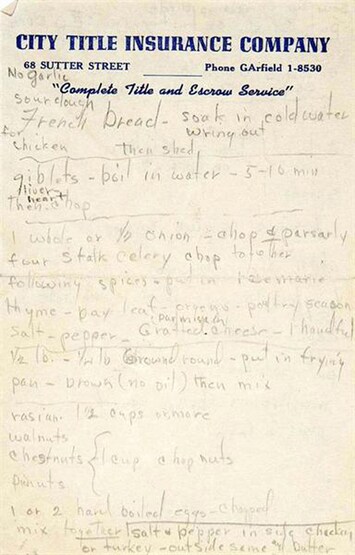 CITY TITLE INSURANCE COMPANY
68 SUTTER STREET Phone GArfield 1-8530
"Complete Title and Escrow Service"
No garlic
sourdough
French Bread - soak in cold water
for wring out
chicken then shed
giblets - boil in water - 5-10 min
liver
heart
then chop
1 whole or 1/2 onion - chop & parsarly
four stalk celery chop together
following spices - put in rosemarie
thyme - bay leaf - - poultry season
parmisian
salt - pepper - Grated cheese - 1 handful
1/2 lb. - 1/4 lb Ground round - put in frying
pan - brown (no oil) then mix
rasian 1 2 cups or more
walnuts
chestnuts 1 cup chop nuts
pinuts
1 or 2 hard boiled eggs - chopped
mix together salt & pepper in side chicken
or turkey - outside same & butter